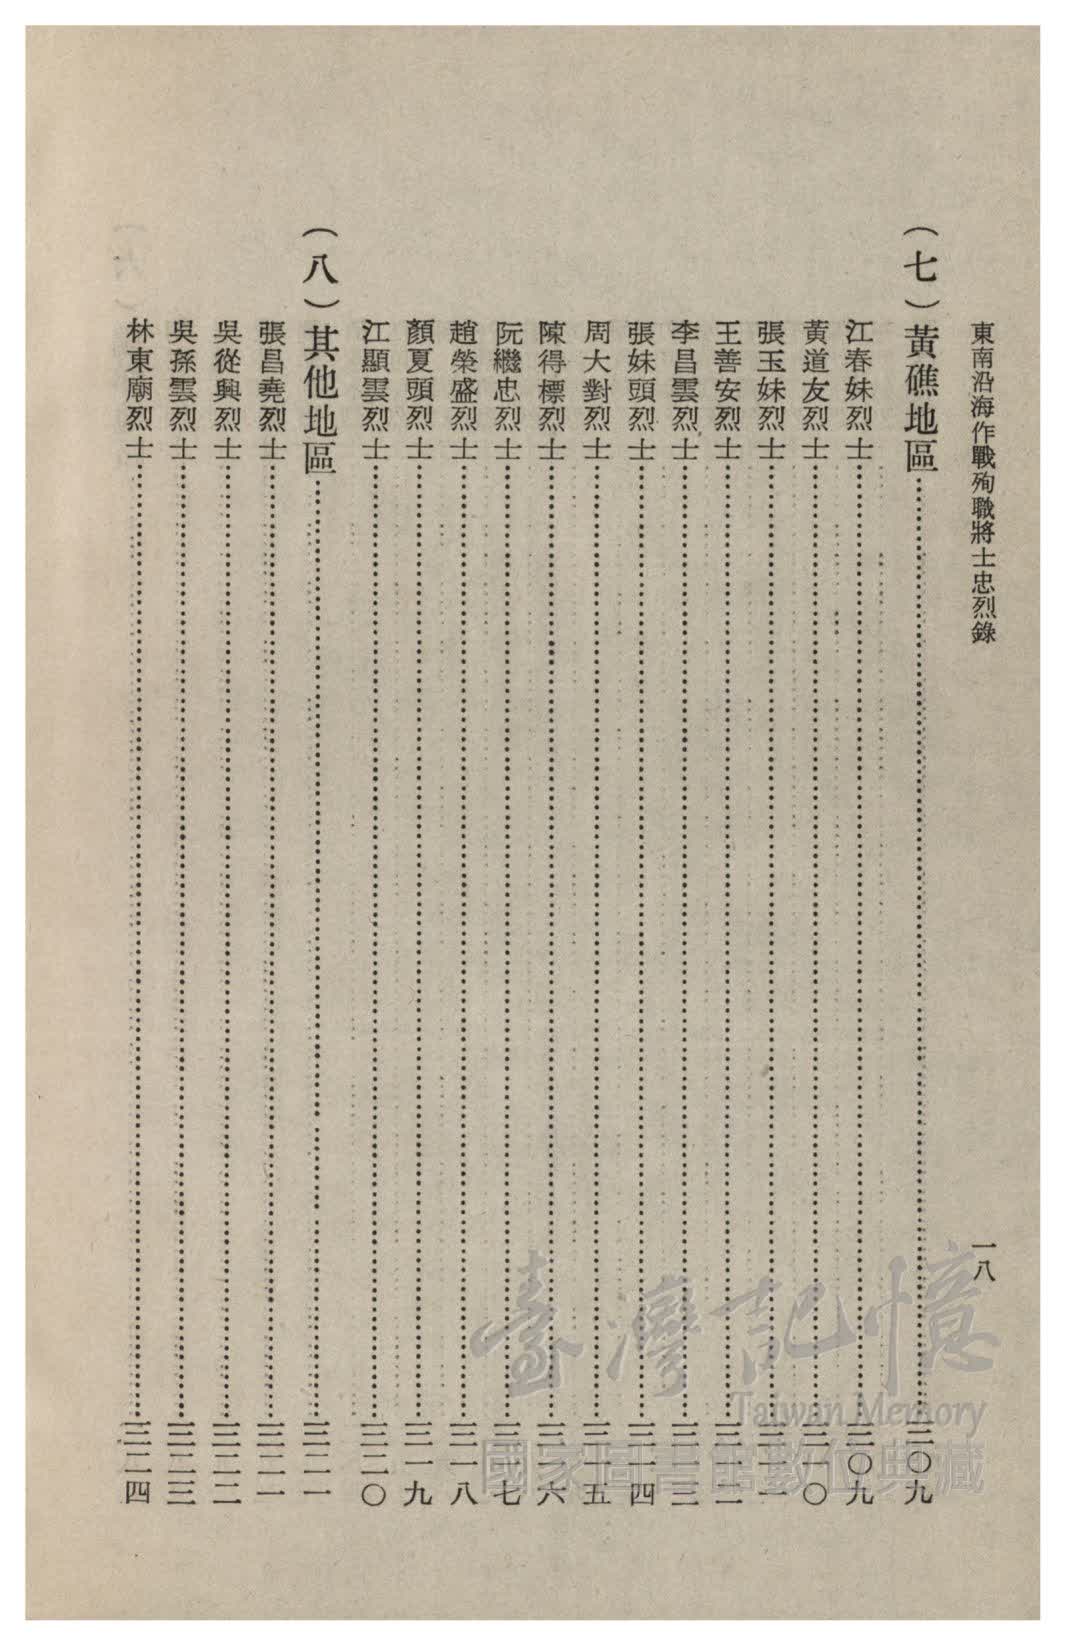 東南沿海作戰殉職將士忠烈錄
一八
（七）黃礁地區……三〇九
江春妹烈士……三〇九
黃道友烈士……三一〇
張玉妹烈士……三一一
王善安烈士……三一二
李昌雲烈士……三一三
張妹頭烈士……三一四
周大對烈士……三一五
陳得標烈士……三一六
阮繼忠烈士……三一七
趙榮盛烈士……三一八
顏夏頭烈士……三一九
江顯雲烈士……三二〇
（八）其他地區……三二一
張昌堯烈士……三二一
吳從興烈士……三二二
吳孫雲烈士……三二三
林東廟烈士……三二四
臺灣記憶
Taiwan Memory
國家圖書館數位典藏